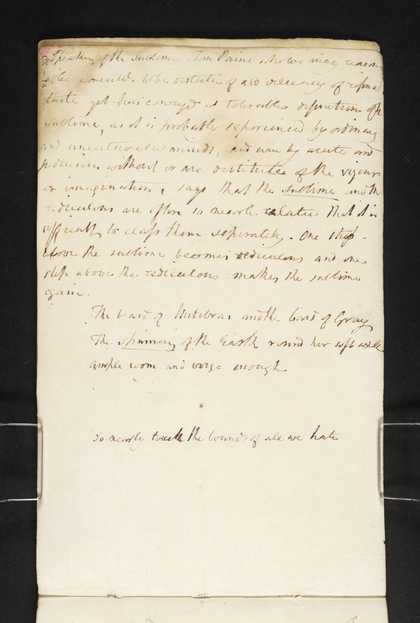 Speaking of the sublime Tom Paine whom we may reason
ably consider to be destitute of all delicacy of refined
taste yet has conveyd a tolerable definition of the
sublime, as it is probably experienced by ordinary
and uncultivated minds, and even by acute and
judicious without or are destitute of the vigour
or imagination, says that the sublime and the
rediculous are often so nearly related that it is
difficult to class them seperately. One step
above the sublime becomes rediculous and one
step above the rediculous makes the sublime
again.
The bard of with bard of Gray
The spinning of the Earth round her soft axle
ample room and verge enough
so nearly touch the bounds of all we hate